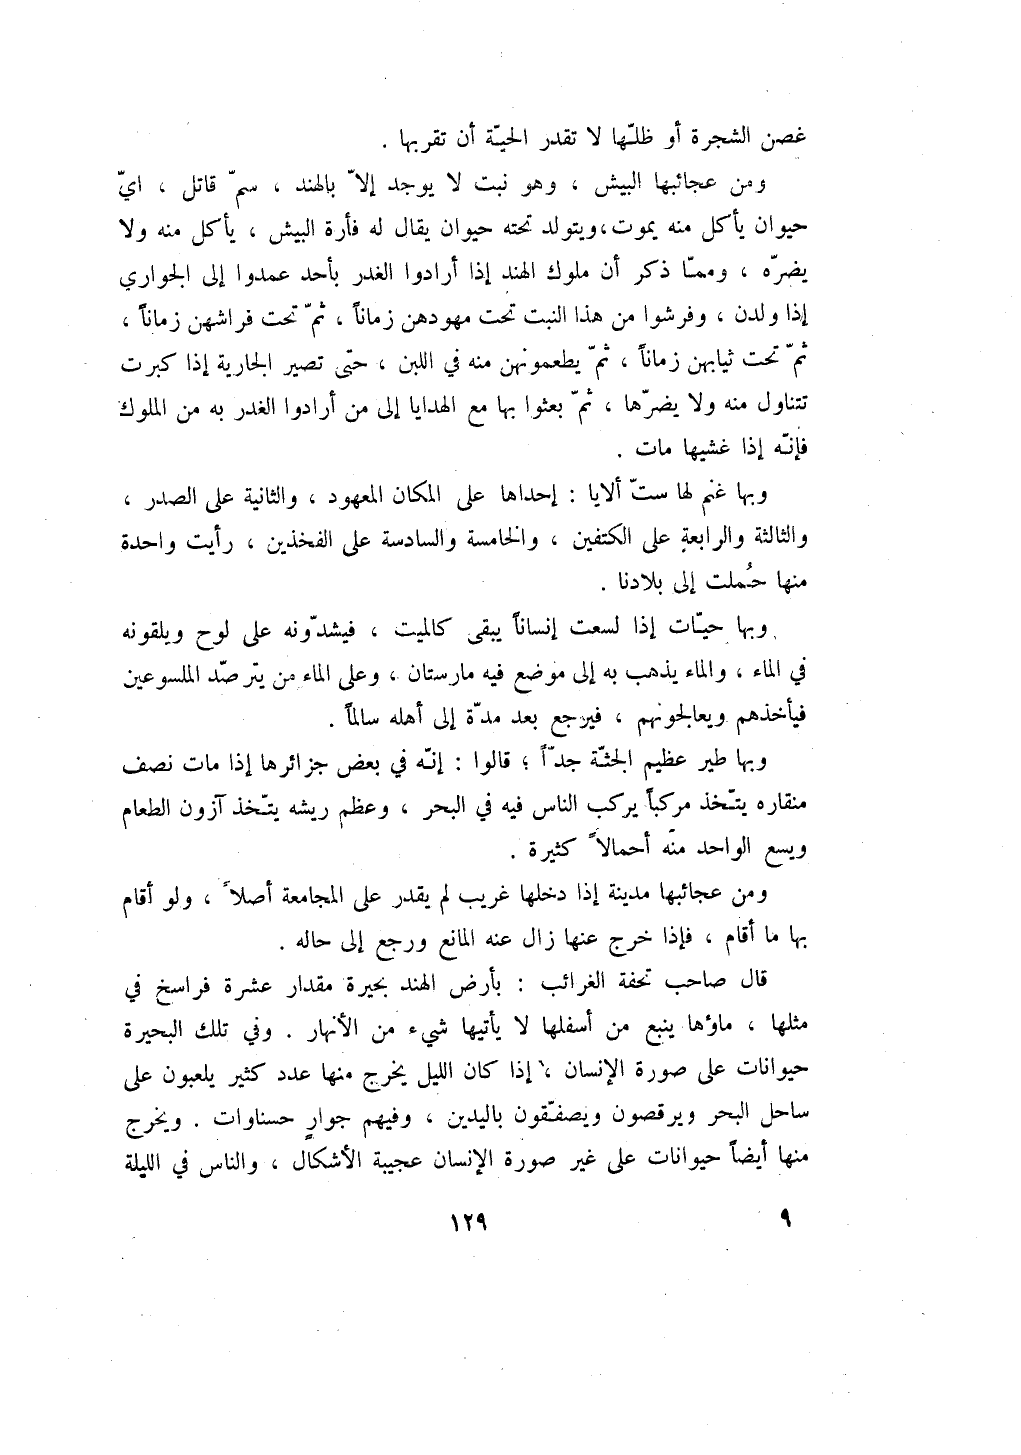 غصن الشجرة أو ظلّها لا تقدر الحيّة أن تقربها .
ومن عجائبها البيش ، وهو نبت لا يوجد إلاّ بالهند ، سمّ قاتل ، ايّ
حيوان يأكل منه يموت،ويتولد تحته حيوان يقال له فأرة البيش ، يأكل منه ولا
يضرّه ، وممّا ذكر أن ملوك الهند إذا أرادوا الغدر بأحد عمدوا إلى الجواري
إذا ولدن ، وفرشوا من هذا النبت تحت مهودهن زماناً ، ثمّ تحت فراشهن زماناً ،
ثمّ تحت ثيابهن زماناً ، ثمّ يطعمونهن منه في اللبن ، حتّى تصير الجارية إذا كبرت
تتناول منه ولا يضرّها ، ثمّ بعثوا بها مع الهدايا إلى من أرادوا الغدر به من الملوك
فإنّه إذا غشيها مات .
وبها غنم لها ستّ ألايا : إحداها على المكان المعهود ، والثانية على الصدر ،
والثالثة والرابعة على الكتفين ، والخامسة والسادسة على الفخذين ، رأيت واحدة
منها حُملت إلى بلادنا .
وبها حيّات إذا لسعت إنساناً يبقى كالميت ، فيشدّونه على لوح ويلقونه
في الماء ، والماء يذهب به إلى موضع فيه مارستان ، وعلى الماء من يترصّد الملسوعين
فيأخذهم ويعالجونهم ، فيرجع بعد مدّة إلى أهله سالماً .
وبها طير عظيم الجثّة جدّاً ؛ قالوا : إنّه في بعض جزائرها إذا مات نصف
منقاره يتّخذ مركباً يركب الناس فيه في البحر ، وعظم ريشه يتّخذ آزون الطعام
ويسع الواحد منه أحمالاً كثيرة .
ومن عجائبها مدينة إذا دخلها غريب لم يقدر على المجامعة أصلاً ، ولو أقام
بها ما أقام ، فإذا خرج عنها زال عنه المانع ورجع إلى حاله .
قال صاحب تحفة الغرائب : بأرض الهند بحيرة مقدار عشرة فراسخ في
مثلها ، ماؤها ينبع من أسفلها لا يأتيها شيء من الأنهار . وفي تلك البحيرة
حيوانات على صورة الإنسان ، إذا كان الليل يخرج منها عدد كثير يلعبون على
ساحل البحر ويرقصون ويصفّقون باليدين ، وفيهم جوارٍ حسناوات . ويخرج
منها أيضاً حيوانات على غير صورة الإنسان عجيبة الأشكال ، والناس في الليلة
٩
١٢٩